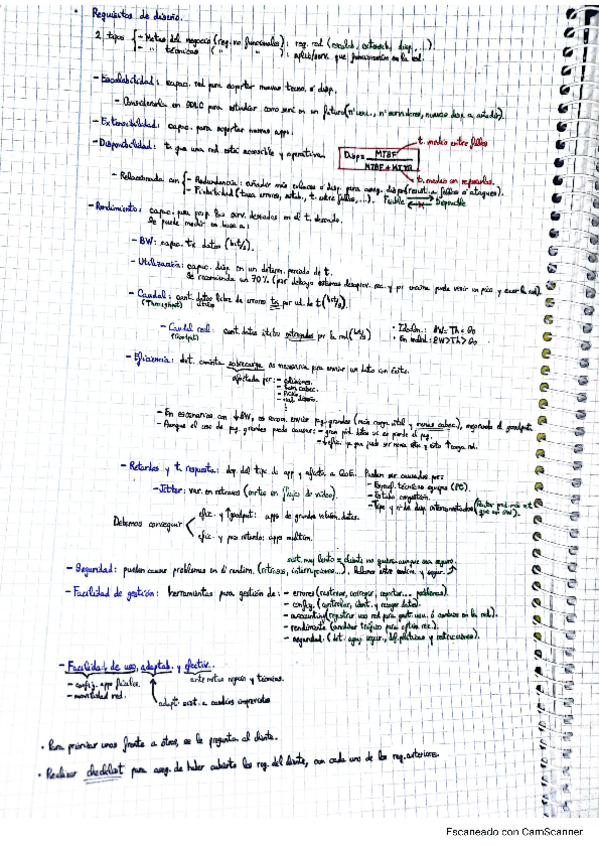 Requisitos de diseño.
2 tipos - Metas del negocio (req. no funcionales): req. red (escalab., extensib., disp., ...).
- " técnicas ( " " ): aplic/serv. que funcionarán en la red.
- Escalabilidad: capac. red para soportar nuevas tecno. o disp.
- Considerarla en SDLC para estudiar como será en un futuro (nº usu., nº servidores, nuevos disp. a añadir).
- Extensibilidad: capac. para soportar nuevas apps.
- Disponibilidad: t. que una red está accesible y operativa.
Disp = MTBF / MTBF + MTTR
t. medio entre fallos
t. medio en repararlos.
- Relacionada con - Redundancia: añadir más enlaces o disp. para aseg. dispo (resist. a fallos o ataques).
- Fiabilidad (tasa errores, estab., t. entre fallos, ...). Fiable Disponible
- Rendimiento: capac. para prop. los serv. deseados en el t. deseado.
Se puede medir en base a:
- BW: capac. tx datos (bit/s).
- Utilización: capac. disp. en un determ. periodo de t.
Se recomienda un 70% (por debajo estamos desaprov. rec. y por encima puede venir un pico y caer la red).
- Caudal: cant. datos libre de errores tx por ud. de t (bit/s).
(Throughput) útiles
- Caudal real: cant. datos útiles entregados por la red (bit/s)
(Goodput)
• Idealm.: BW = Th = Go
• En realid.: BW > Th > Go
- Eficiencia: det. cuanta sobrecarga es necesaria para enviar un dato con éxito.
afectada por: - colisiones.
- tam. cabec.
- ACKs.
- En escenarios con ↓BW, es recom. enviar paq. grandes (más carga útil y menos cabec.), mejorando el goodput.
- Aunque el caso de paq. grandes puede causar: - gran pérd. datos si se pierde el paq.
- Retardos y t. respuesta: dep. del tipo de app y afecta a QoE. Pueden ser causados por:
- Especif. técnicas equipos (PC).
- Estado congestión.
- Tipo y nº de disp. interconectados (Router prod. más ret. que un SW).
- Jitter: var. en retrasos (cortes en flujos de vídeo).
Debemos conseguir
efic. y ↑goodput: apps de grandes volúm. datos.
efic. y poco retardo: apps multim.
sist. muy lento = cliente no quiere aunque sea seguro.
- Seguridad: pueden causar problemas en el rendim. (retrasos, interrupciones...). Balance entre rendim. y segur.
- Facilidad de gestión: herramientas para gestión de: - errores (rastrear, corregir, reportar... problemas).
- config. (controlar, ident. y recoger datos).
- accounting (registrar uso red para gesti. usu. ó cambios en la red).
- rendimiento (analizar tráfico para optim. rec.).
- seguridad. (dist. aseg. segur., def. políticas y restricciones).
- Facilidad de uso, adaptab. y efectiv.
- config. apps fáciles.
- movilidad red.
entre metas negocio y técnicas.
adapt. sist. a cambios imprevistos
• Para priorizar unas frente a otras, se le pregunta al cliente.
• Realizar checklist para aseg. de haber cubierto los req. del cliente, con cada uno de los req. anteriores.
Escaneado con CamScanner